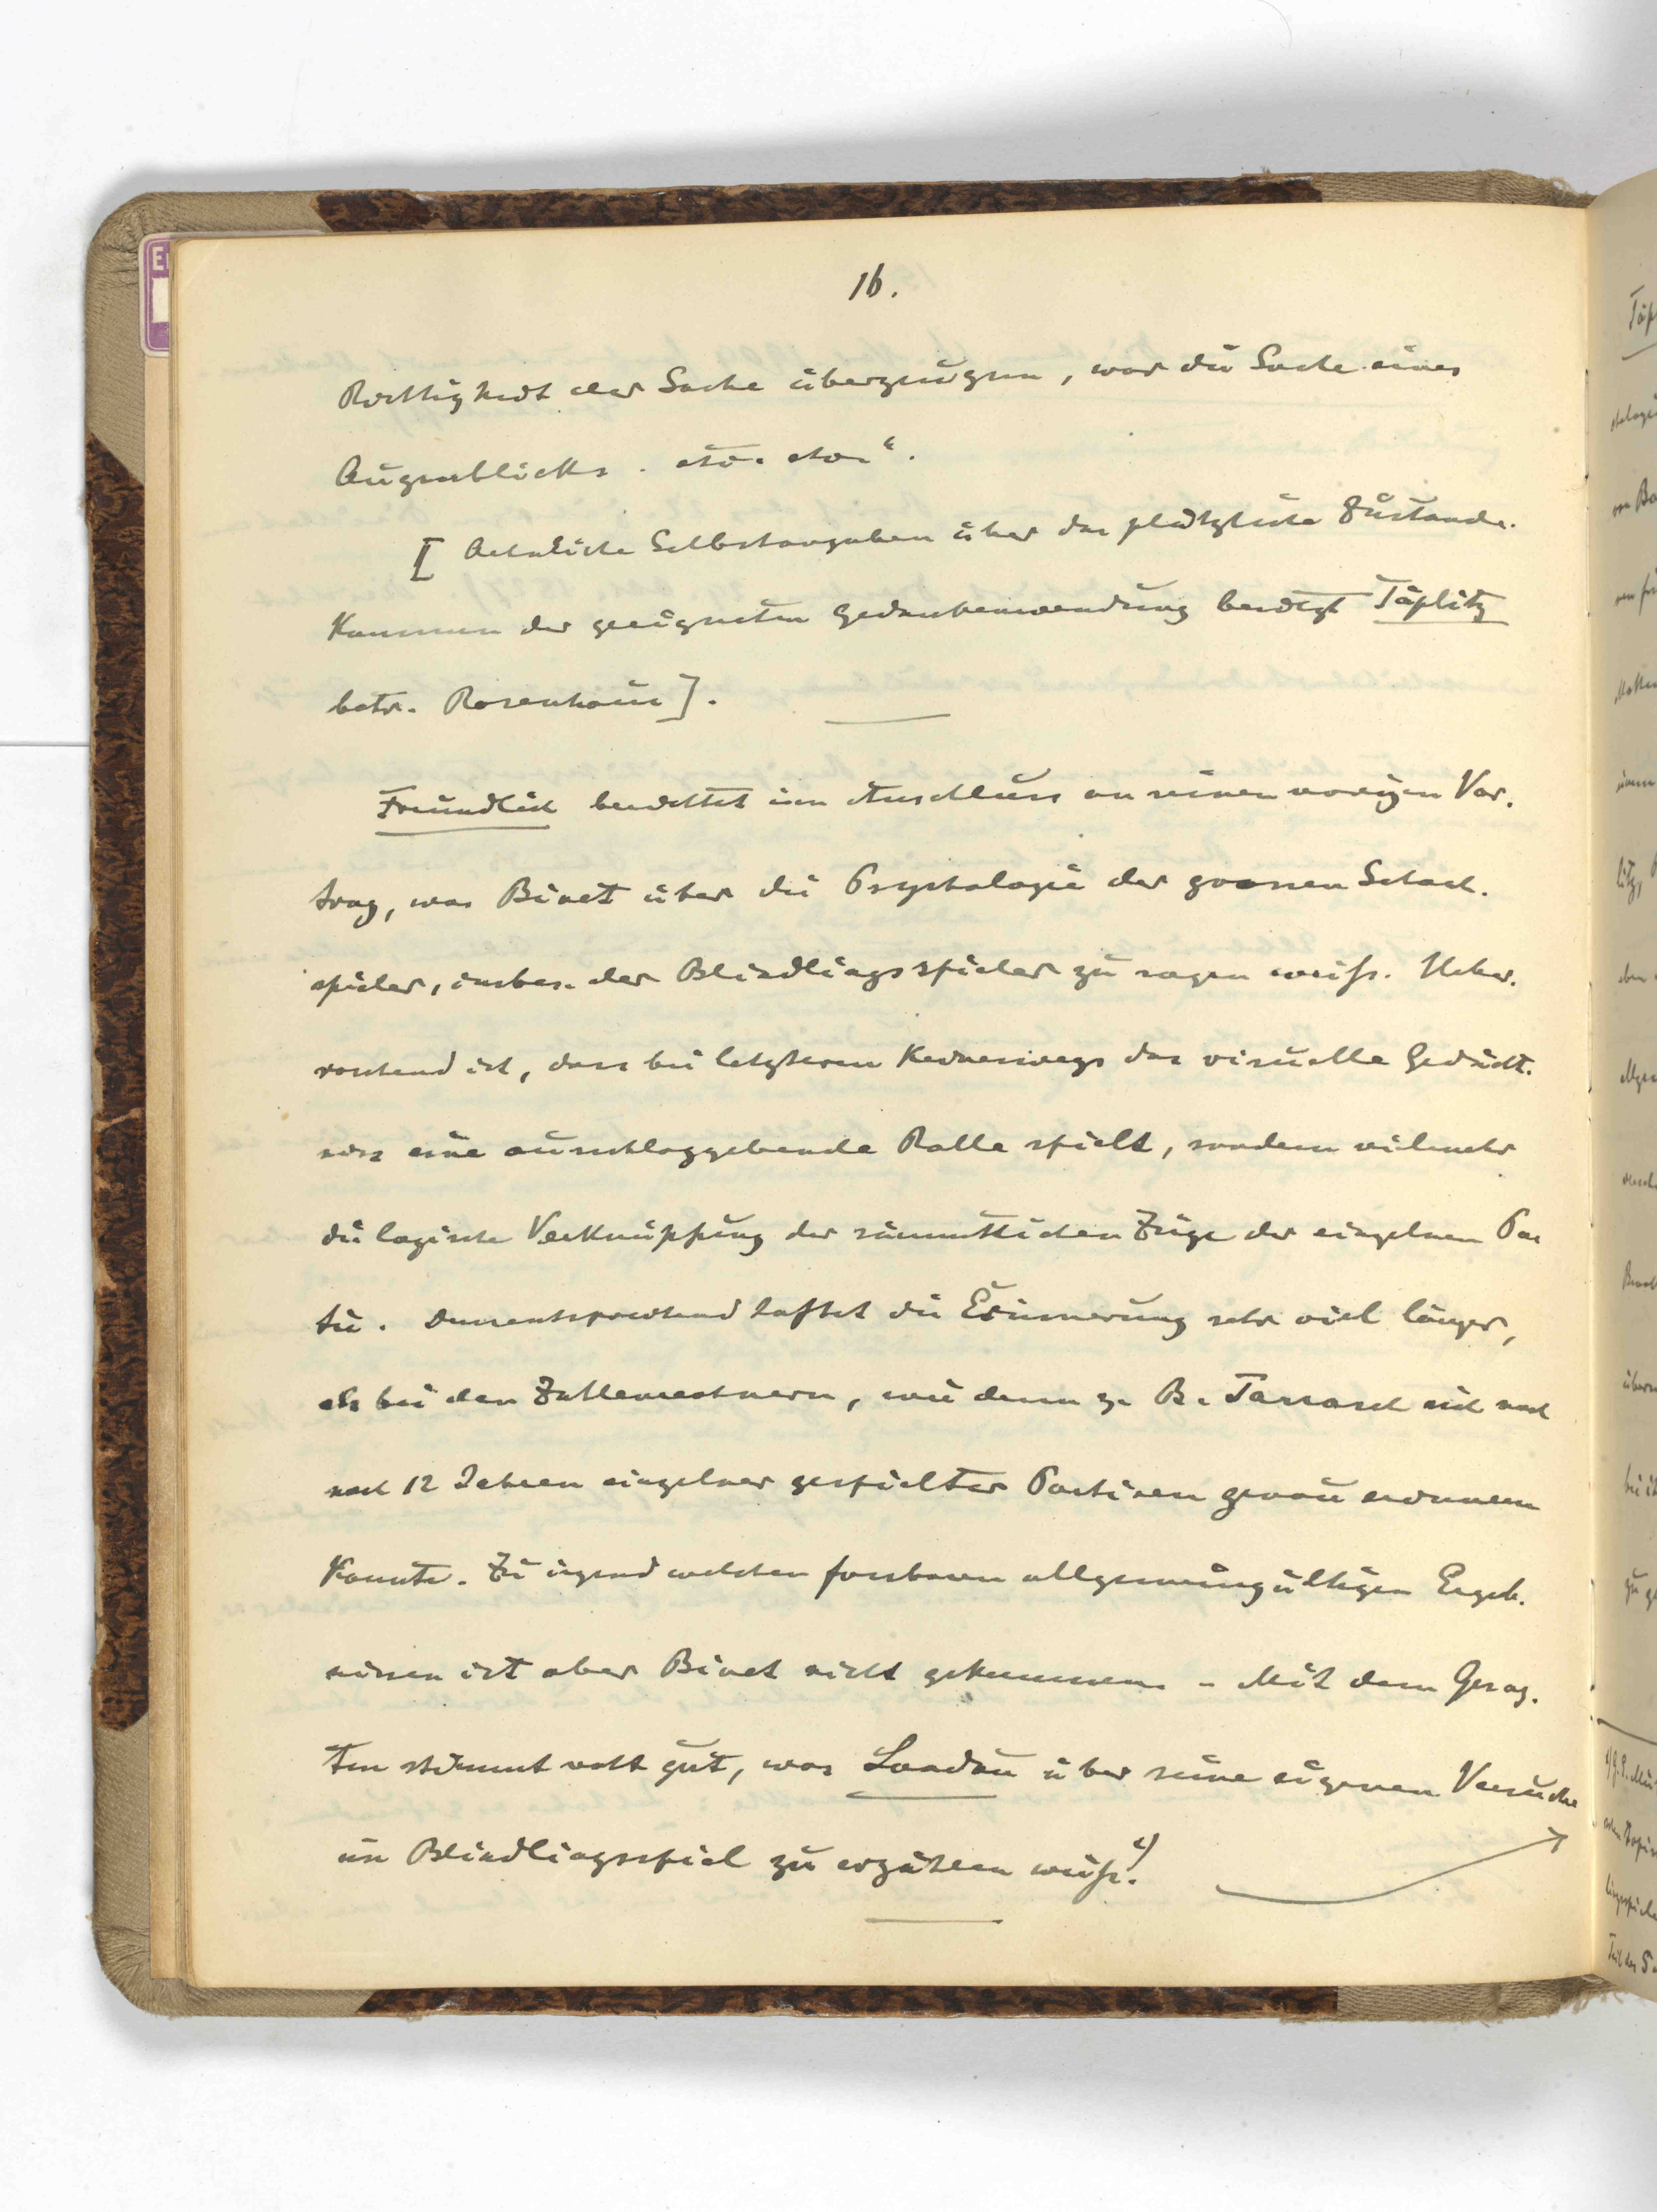 16.
Richtigkeit der Sache überzeugen, war die Sache eines
Augenblicks. etc. etc."
[Aehnliche Selbstangaben über das plötzliche Zustande-
kommen der geeigneten Gedankenwendung berichtet Töplitz
betr. Rosenhain].
Freundlich berichtet im Anschluss an seinen vorigen Vor-
trag, was Binet über die Psychologie der grossen Schach-
spieler, insbes. der Blindlingsspieler zu sagen weiß. Ueber-
raschend ist, dass bei letzteren keineswegs das visuelle Gedächt-
niss eine ausschlaggebende Rolle spielt, sondern vielmehr
die logische Verknüpfung der sämmtlichen Züge der einzelnen Par
tie. Dementsprechend haftet die Erinnerung sehr viel länger,
als bei den Zahlenrechnern, wie denn z. B. Tarrasch sich noch
nach 12 Jahren einzelner gespielter Partieen genau erinnern
konnte. Zu irgend welchen fassbaren allgemeingültigen Ergeb-
nissen ist aber Binet nicht gekommen. - Mit dem Gesag-
ten stimmt recht gut, was Landau über seine eigenen Versuche
im Blindlingsspiel zu erzählen weiß.